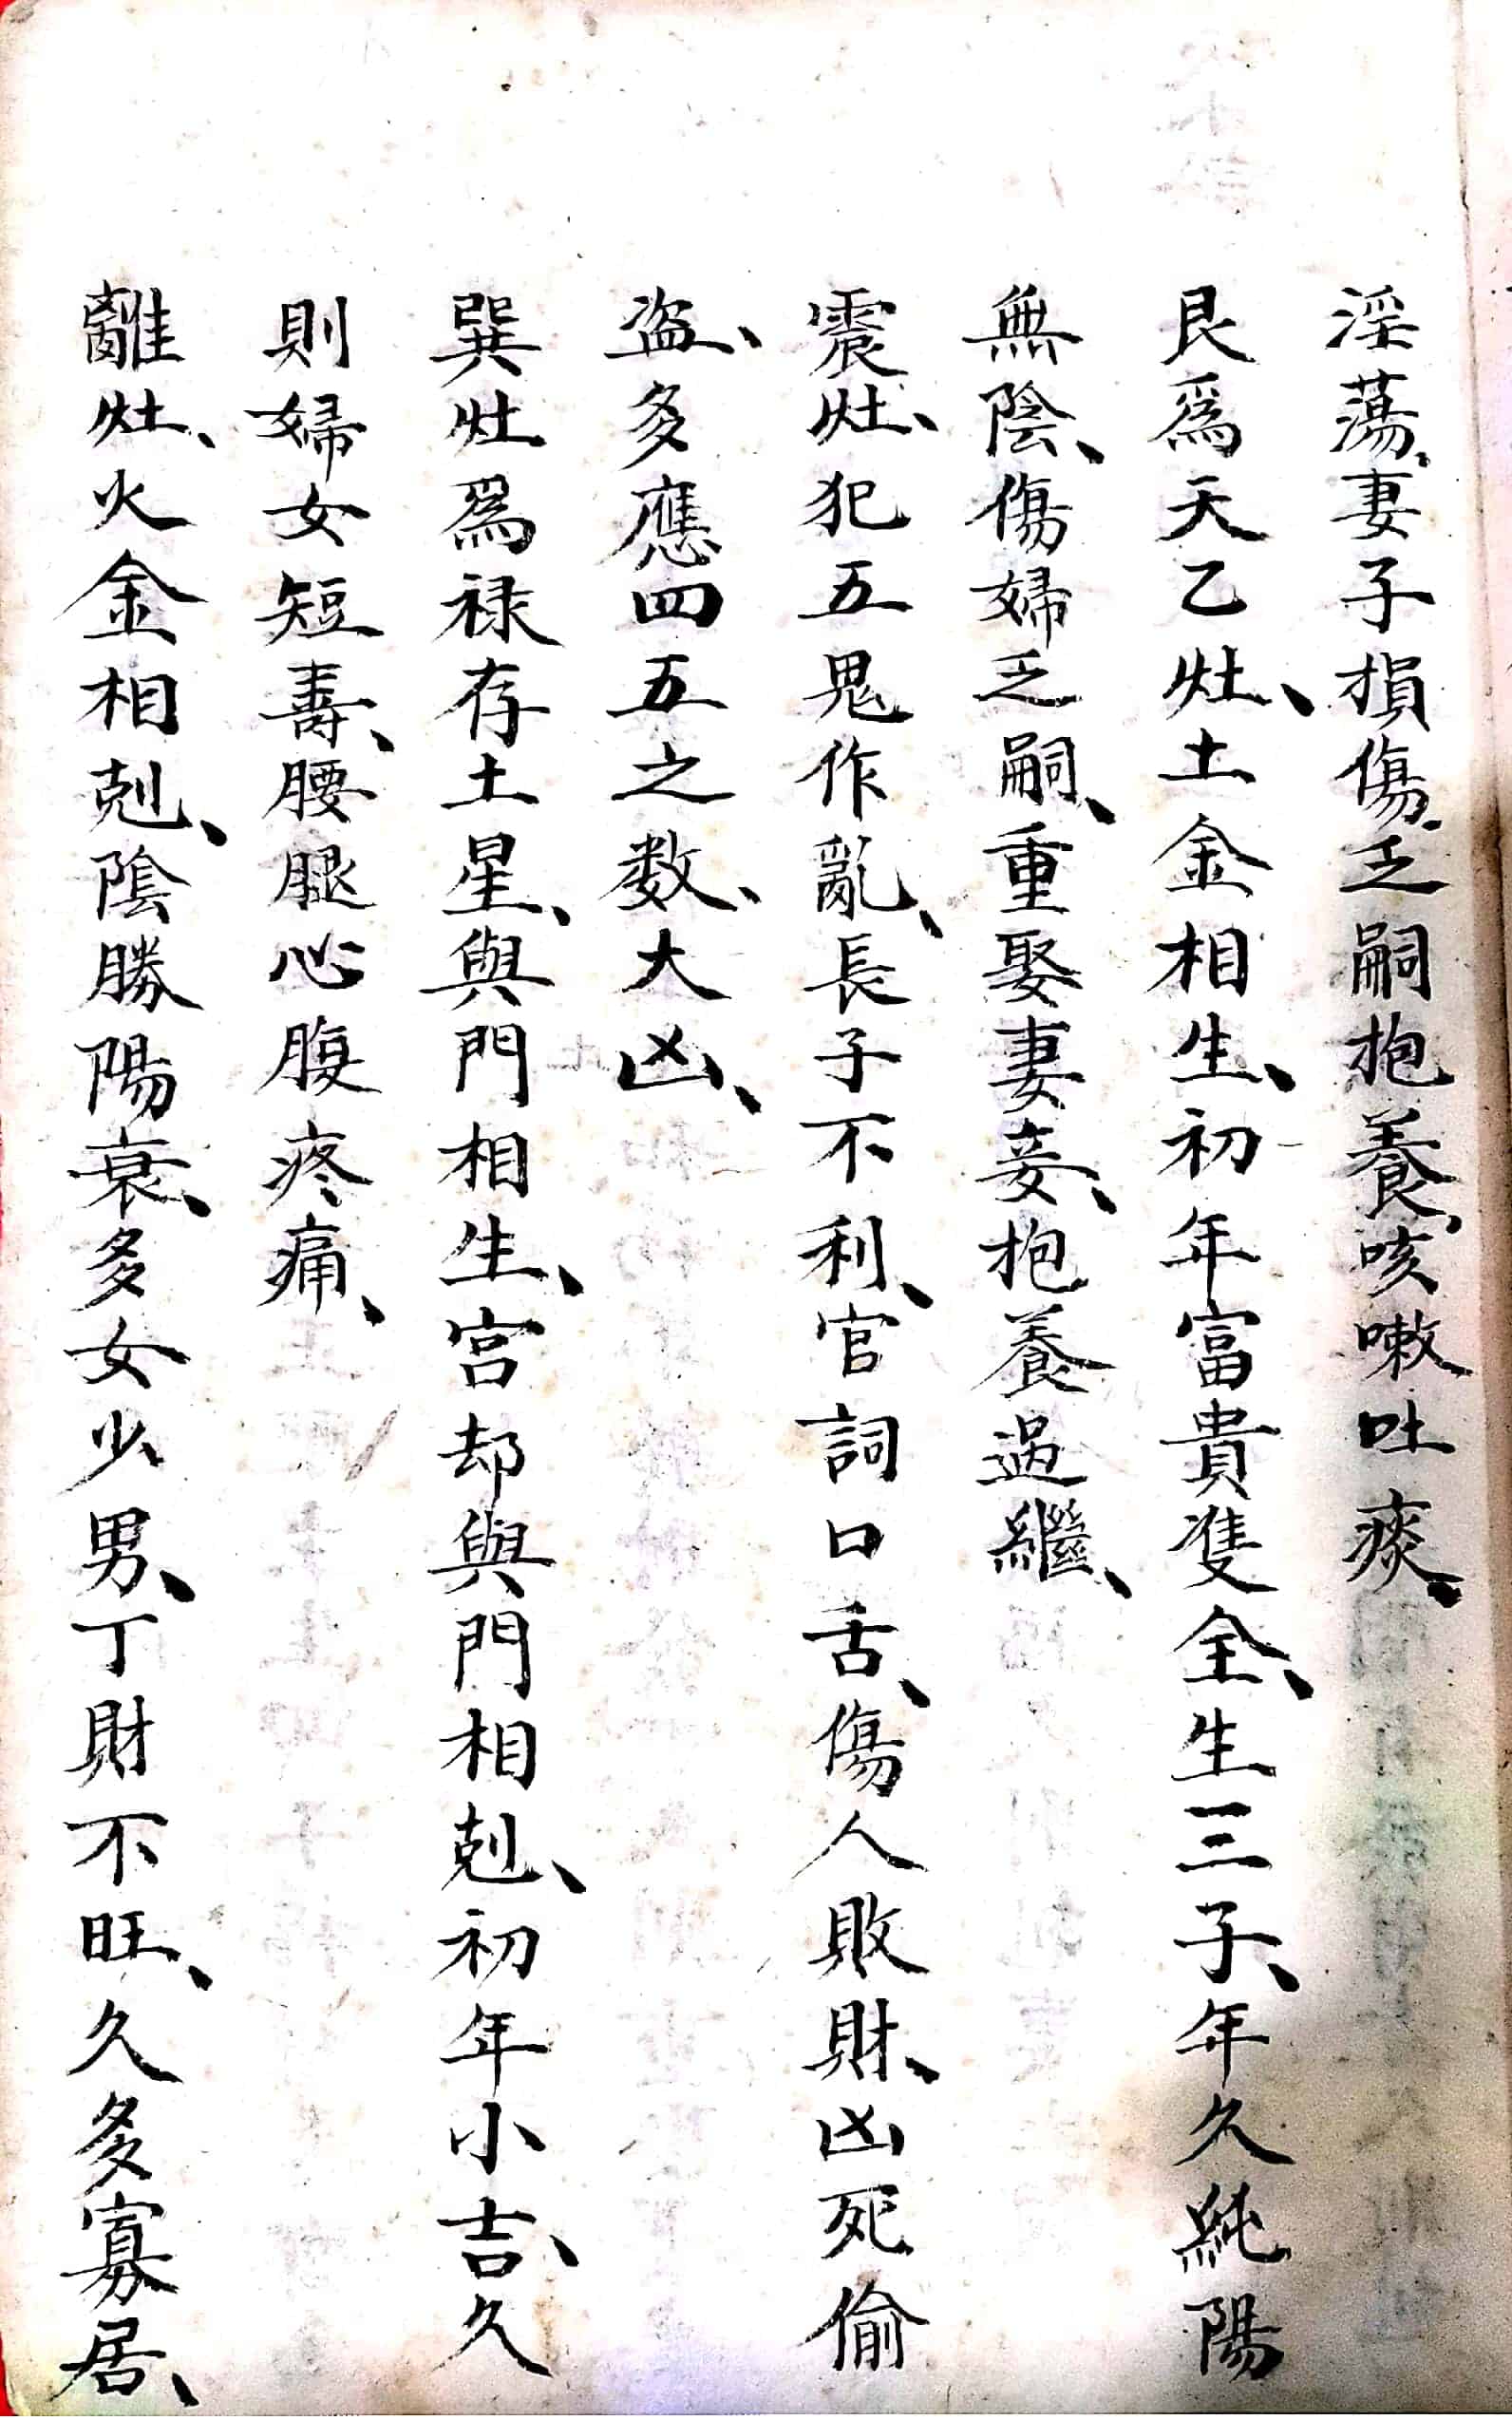 淫蕩、妻子損傷、乏嗣抱養、咳嗽吐痰、
艮為天乙灶、土金相生、初年富貴隻全、生三子、年久純陽
無陰、傷婦乏嗣、重娶妻妾、抱養過繼、
震灶、犯五鬼作亂、長子不利、官詞口舌、傷人敗財、凶死偷
盗、多應四五之数、大凶、
巽灶為禄存土星、與門相生、宮却與門相剋、初年小吉、久
則婦女短壽、腰腿心腹疼痛、
離灶、火金相剋、陰勝陽衰、多女少男、丁財不旺、久多寡居、